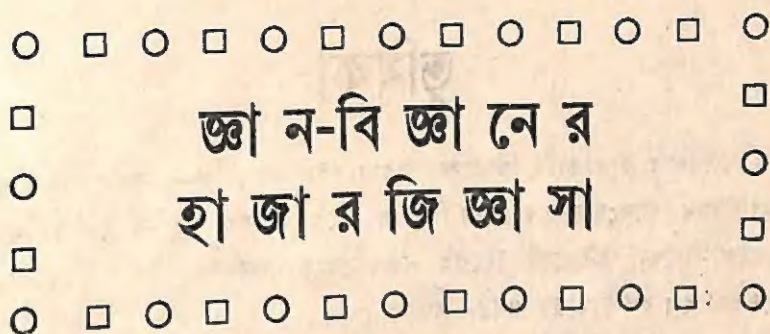 জ্ঞান-বিজ্ঞানের
হাজার জিজ্ঞাসা